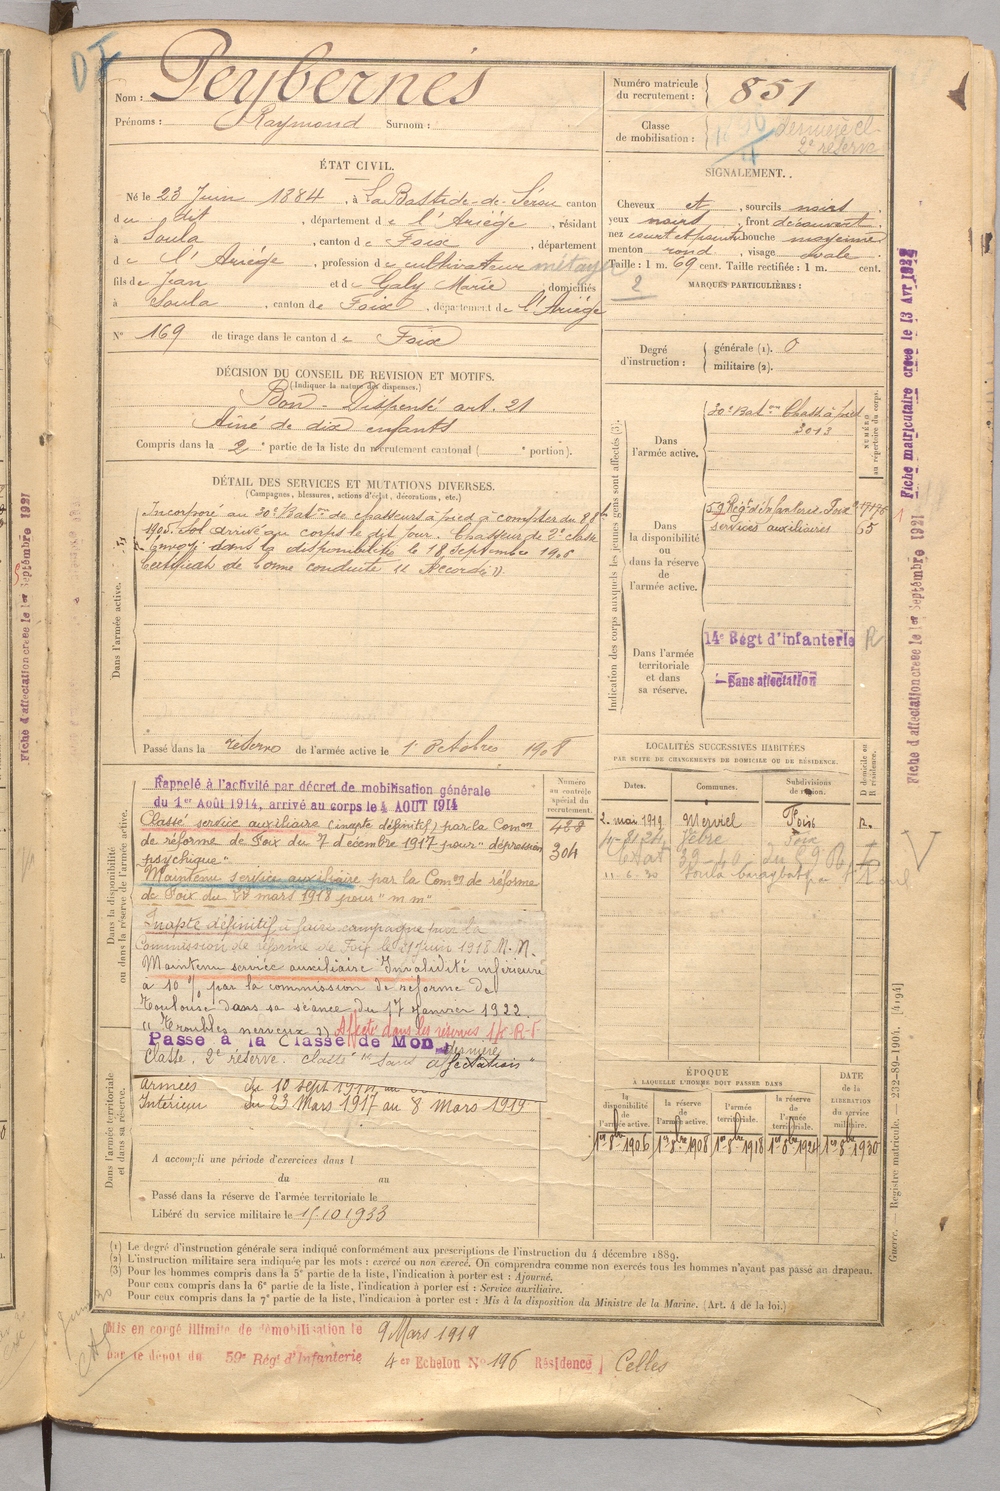 Nom : Peybernès
Prénoms : Raymond Surnom :
Numéro matricule
du recrutement : 851
Classe
de mobilisation : dernière cl.
2e réserve
ÉTAT CIVIL.
Né le 23 Juin 1884, à La Bastide-de-Sérou canton
du dit, département de l'Ariège, résidant
à Soula, canton de Foix, département
de l'Ariège, profession de cultivateur métayer
fils de Jean et de Galy Marie, domiciliés
à Soula, canton de Foix, département de l'Ariège
No 169 de tirage dans le canton de Foix
SIGNALEMENT.
Cheveux et, sourcils noirs.
yeux noirs, front découvert.
nez court et pointu bouche moyenne
menton rond, visage ovale.
Taille : 1 m. 69 cent. Taille rectifiée : 1 m. cent.
2
MARQUES PARTICULIÈRES :
Degré
d'instruction :
générale (1). 0
militaire (2).
DÉCISION DU CONSEIL DE REVISION ET MOTIFS.
(Indiquer la nature des dispenses.)
Bon - Dispensé art. 21
Aîné de dix enfants
Compris dans la 2e partie de la liste du recrutement cantonal ( e portion).
DÉTAIL DES SERVICES ET MUTATIONS DIVERSES.
(Campagnes, blessures, actions d'éclat, décorations, etc.)
Dans l'armée active.
Incorporé au 30e Baton de chasseurs à pied à compter du 8 8bre
1905. Sol arrivé au corps le dit jour. Chasseur de 2e classe
Envoyé dans la disponibilité le 18 Septembre 1906
Certificat de bonne conduite "Accordé"
Passé dans la réserve de l'armée active le 1er Octobre 1908
Indication des corps auxquels les jeunes gens sont affectés (3).
NUMÉRO
au répertoire du corps.
Dans
l'armée active.
30e Baton Chass à pied
3013
Dans
la disponibilité
ou dans la réserve
de
l'armée active.
59 Régt d'Infanterie Foix
services auxiliaires 65
Dans l'armée
territoriale
et dans
sa réserve.
14e Régt d'Infanterie R
Sans affectation
Dans la disponibilité
ou dans la réserve de l'armée active.
Numéro
au contrôle
spécial du
recrutement.
488
304
Rappelé à l'activité par décret de mobilisation générale
du 1er Août 1914, arrivé au corps le 4 AOUT 1914
Classé service auxiliaire (inapte définitif) par la Comon
de réforme de Foix du 7 décembre 1917 pour "dépression
psychique"
Maintenu service auxiliaire par la Comon de réforme
de Foix du mars 1918 pour "m m"
Inapte définitif à faire campagne par la
Commission de réforme de Foix le 21 Juin 1918 N. N.
Maintenu service auxiliaire Invalidité inférieure
à 10 % par la commission de réforme de
Toulouse dans sa séance du 17 Janvier 1922.
"Troubles nerveux" Affecté dans les réserves
Passé à la Classe de Mon dernière
Classe. 2e réserve. classé "Sans affectation"
Dans l'armée territoriale
et dans sa réserve.
Armées du 10 sept au
Intérieur du 23 Mars 1917 au 8 Mars 1919
A accompli une période d'exercices dans l
du au
Passé dans la réserve de l'armée territoriale le
Libéré du service militaire le 15.10.1933
LOCALITÉS SUCCESSIVES HABITÉES
PAR SUITE DE CHANGEMENTS DE DOMICILE OU DE RÉSIDENCE.
D domicile ou
R résidence.
Dates. Communes. Subdivisions
de région.
2 mai 1919 Merviel Foix R.
Vèbre Foix
11-6-30 Soula
ÉPOQUE
À LAQUELLE L'HOMME DOIT PASSER DANS
la
disponibilité
de
l'armée active.
la réserve
de
l'armée active.
l'armée
territoriale.
la réserve
de
l'armée
territoriale.
DATE
de la
LIBÉRATION
du service
militaire.
1er 8bre 1906 1er 8bre 1908 1er 8bre 1918 1er 8bre 1924 1er 8bre 1930
(1) Le degré d'instruction générale sera indiqué conformément aux prescriptions de l'instruction du 4 décembre 1889.
(2) L'instruction militaire sera indiquée par les mots : exercé ou non exercé. On comprendra comme non exercés tous les hommes n'ayant pas passé au drapeau.
(3) Pour les hommes compris dans la 5e partie de la liste, l'indication à porter est : Ajourné.
Pour ceux compris dans la 6e partie de la liste, l'indication à porter est : Service auxiliaire.
Pour ceux compris dans la 7e partie de la liste, l'indication à porter est : Mis à la disposition du Ministre de la Marine. (Art. 4 de la loi.)
Mis en congé illimité de démobilisation le 9 Mars 1919
par le dépôt du 59e Régt d'Infanterie 4er Echelon No 196 Résidence Celles
Guerre. — Registre matricule. — 232-89-1904. [4194]
Fiche matriculaire créée le 13 Avr 1922
Fiche d'affectation créée le 1er Septembre 1921
Fiche d'affectation créée le 1er Septembre 1921